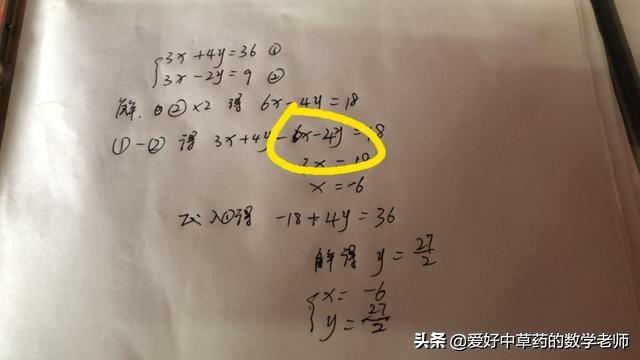 3x+4y=36 ①
3x-2y=9 ②
解. ②×2 得 6x-4y=18
①-② 得 3x+4y-6x-4y=18
3x=18
x=-6
代入①得 -18+4y=36
解得 y=27/2
x=-6
y=27/2
头条 @爱好中草药的数学老师